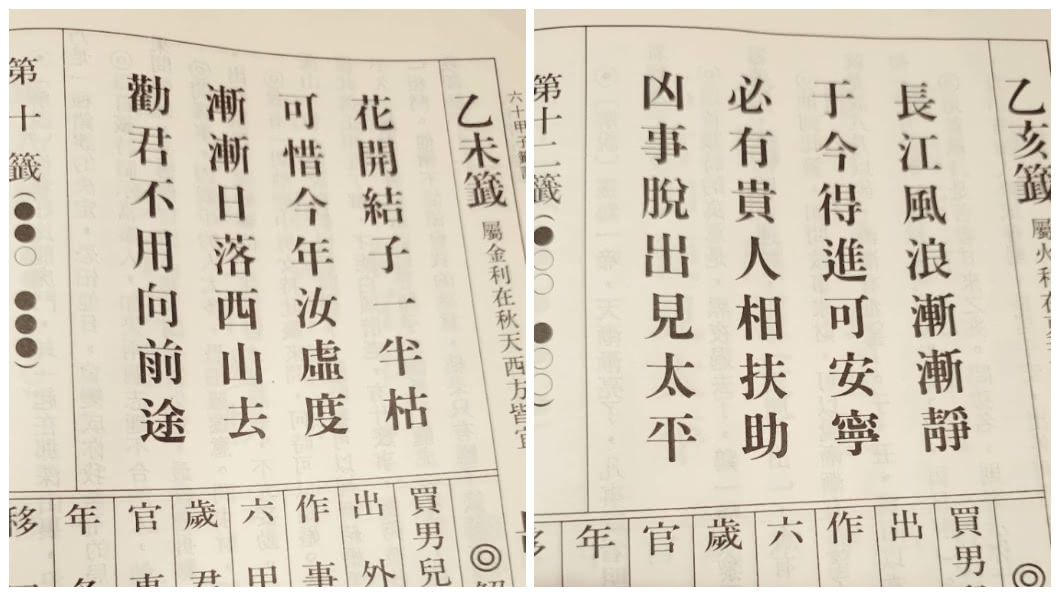 乙未籤 屬金利在秋天西方皆宜
花開結子一半枯
可惜今年汝虛度
漸漸日落西山去
勸君不用向前途
第十籤(●●○ ●●●)
◎
買男兒
出外
作事
六甲
歲君
官事
年
移
乙亥籤 屬火利在
長江風浪漸漸靜
于今得進可安寧
必有貴人相扶助
凶事脫出見太平
第十二籤(●○○ ●○○)
◎
買男
出
作
六
歲
官
年